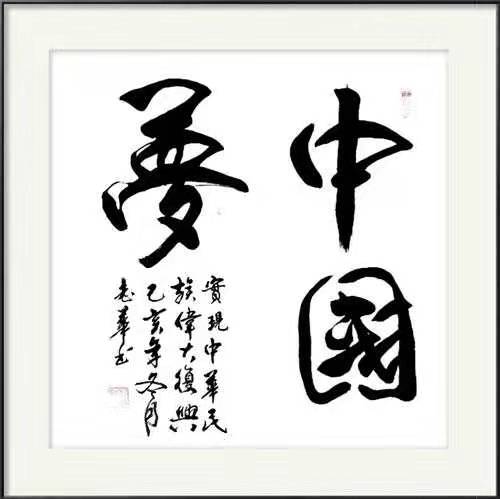 中國
夢
實現中華民
族偉大復興
乙亥年冬月
志華書